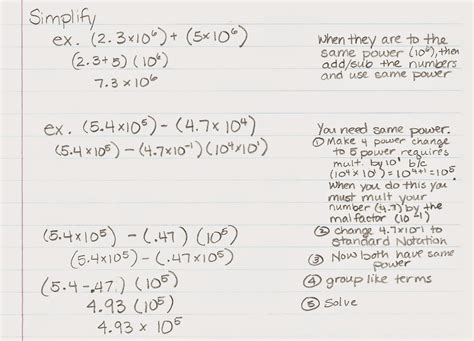 Simplify
ex. (2.3×10⁶) + (5×10⁶)
(2.3+5) (10⁶)
7.3 × 10⁶
When they are to the
same power (10⁶), then
add/sub the numbers
and use same power
ex. (5.4×10⁵) − (4.7 × 10⁴)
(5.4×10⁵) − (4.7×10⁻¹) (10⁴×10¹)
You need same power.
① Make 4 power change
to 5 power requires
mult. by 10¹ b/c
(10⁴ × 10¹) = 10⁴⁺¹ = 10⁵.
When you do this you
must mult your
number (4.7) by the
mal factor (10⁻¹)
(5.4×10⁵) − (.47) (10⁵)
② change 4.7×10⁻¹ to
standard Notation
(5.4×10⁵) − (.47×10⁵)
③ Now both have same
power
(5.4-.47) (10⁵)
④ group like terms
4.93 (10⁵)
⑤ Solve
4.93 × 10⁵